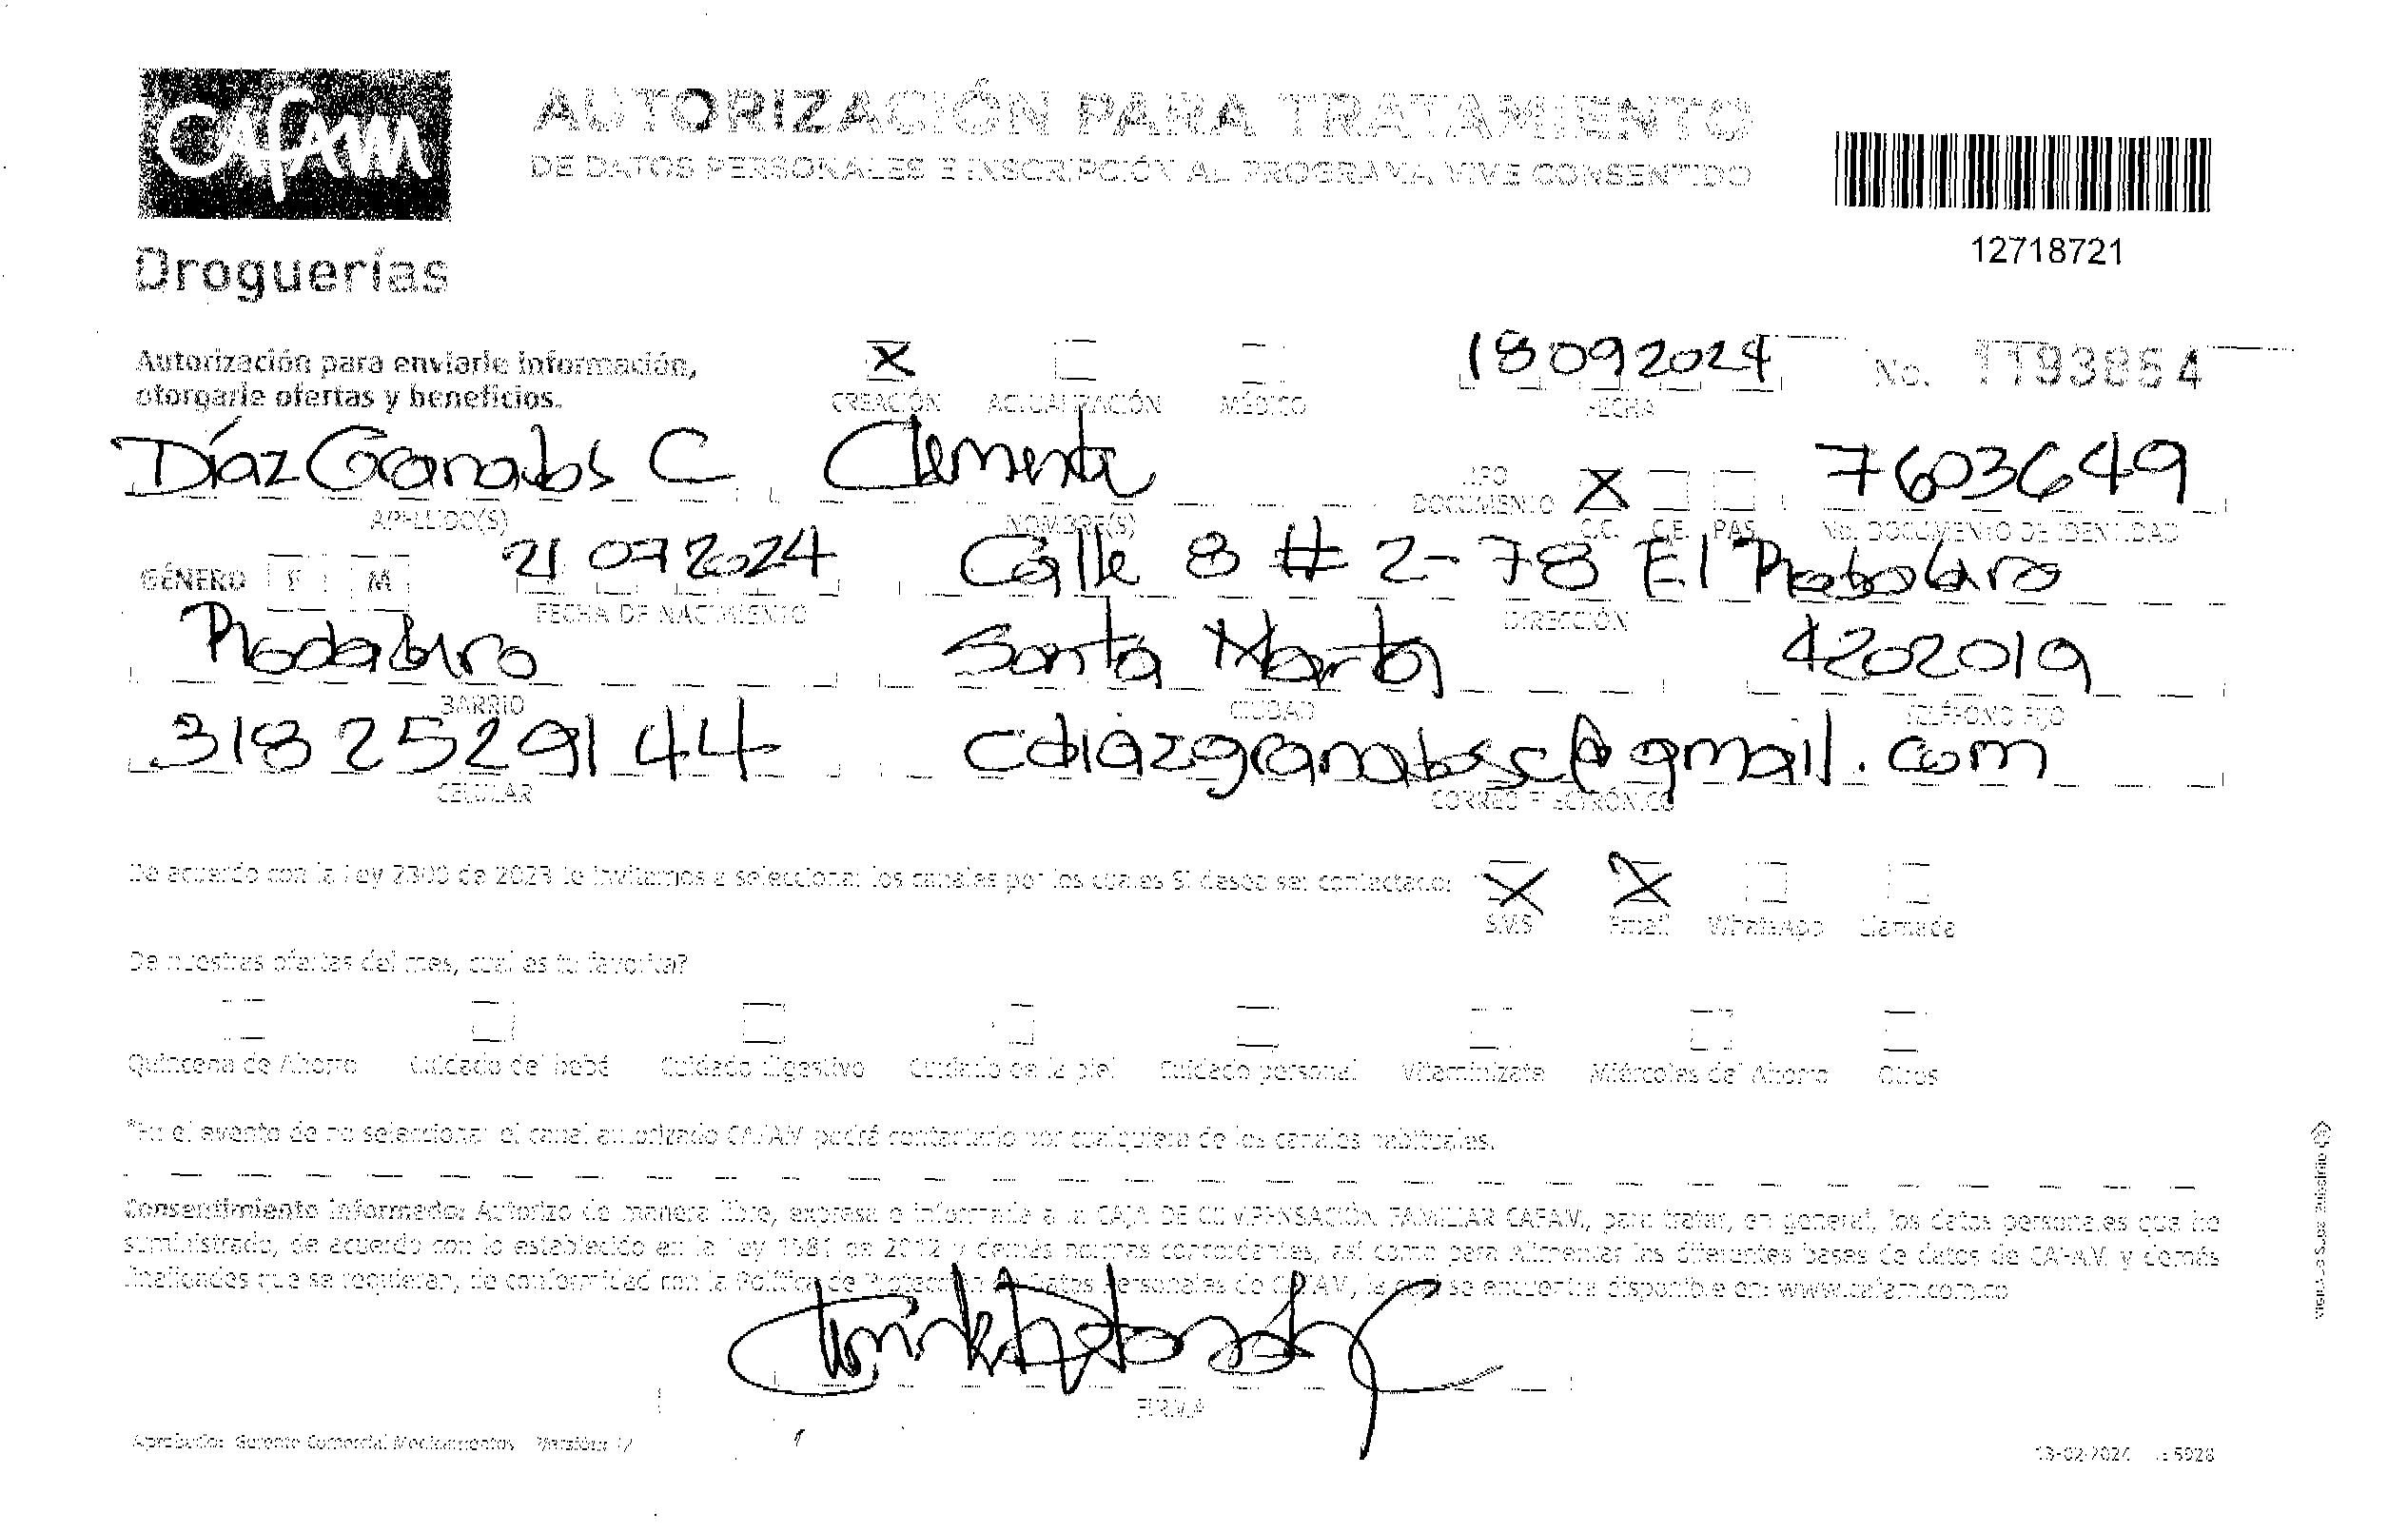 Cafam
AUTORIZACIÓN PARA TRATAMIENTO
DE DATOS PERSONALES E INSCRIPCIÓN AL PROGRAMA VIVE CONSENTIDO
12718721
Droguerías
Autorización para enviarle información,
otorgarle ofertas y beneficios.
X
CREACIÓN ACTUALIZACIÓN MÉDICO
18092024
FECHA
No. 1193854
Díaz Granados C Clemente
TIPO DOCUMENTO X C.C. C.E. PAS.
7603649
APELLIDO(S) NOMBRE(S) No. DOCUMENTO DE IDENTIDAD
GÉNERO F M 21 07 2024 Calle 8 # 2-78 El
FECHA DE NACIMIENTO DIRECCIÓN
Santa Marta 4202019
BARRIO CIUDAD TELÉFONO FIJO
318 2529144 cdiazgranadosc@gmail.com
CELULAR CORREO ELECTRÓNICO
De acuerdo con la Ley 2300 de 2023 le invitamos a seleccionar los canales por los cuales SI desea ser contactado:
X X
SMS Email WhatsApp Llamada
De nuestras ofertas del mes, cual es tu favorita?
Quincena de Ahorro Cuidado del bebé Cuidado digestivo Cuidado de la piel Cuidado personal Vitaminízate Miércoles del Ahorro Otros
*En el evento de no seleccionar el canal autorizado CAFAM podrá contactarlo por cualquiera de los canales habituales.
Consentimiento informado: Autorizo de manera libre, expresa e informada a la CAJA DE COMPENSACIÓN FAMILIAR CAFAM, para tratar, en general, los datos personales que he
suministrado, de acuerdo con lo establecido en la Ley 1581 de 2012 y demás normas concordantes, así como para Alimentar las diferentes bases de datos de CAFAM y demás
finalidades que se requieran, de conformidad con la Política de Protección de Datos Personales de CAFAM, la que se encuentra disponible en: www.cafam.com.co
FIRMA
Aprobación: Gerente Comercial Medicamentos Versión: 12
13-02-2024